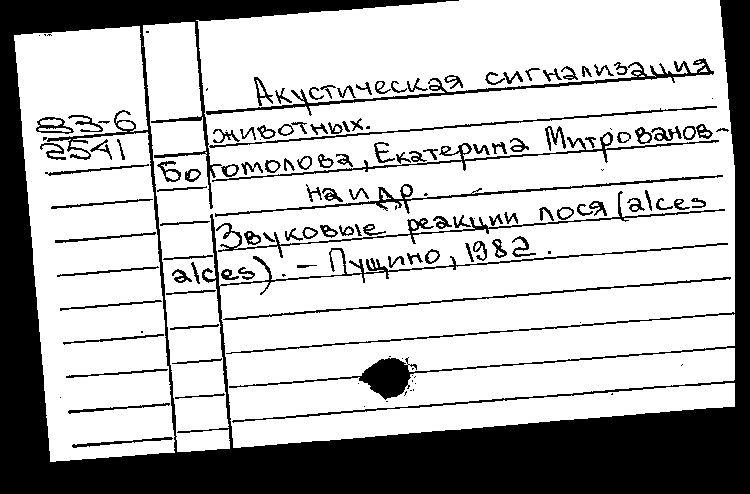 Акустическая сигнализация
83-6
животных.
2541
Богомолова, Екатерина Митрованов-
на и др.
Звуковые реакции лося (alces
alces). - Пущино, 1982.